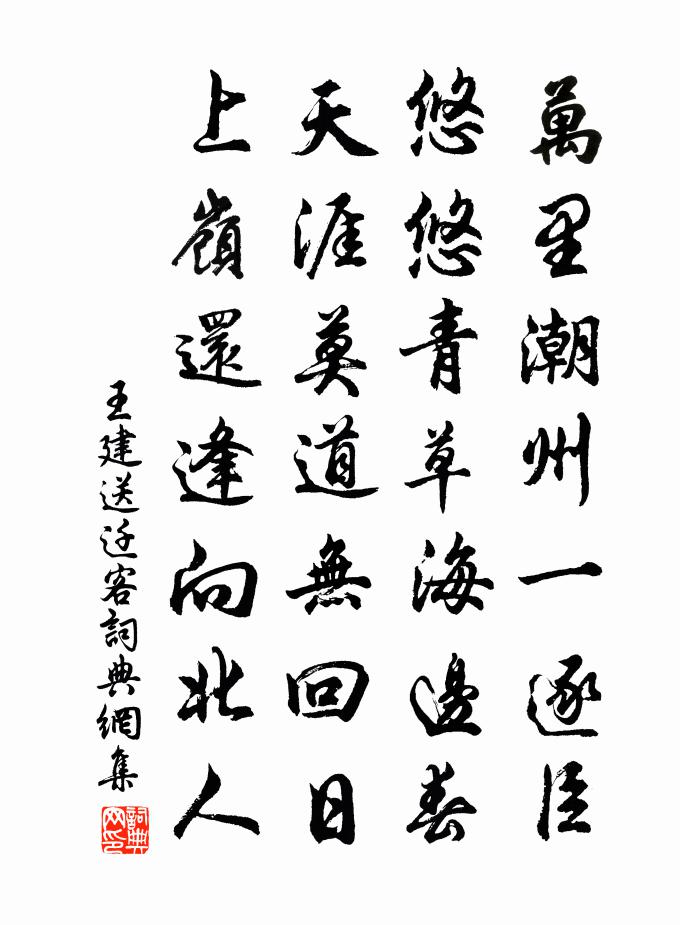 萬里潮州一逐臣
悠悠青草海邊春
天涯莫道無回日
上嶺還逢向北人
王建送迁客詞典網集
詞典
网印